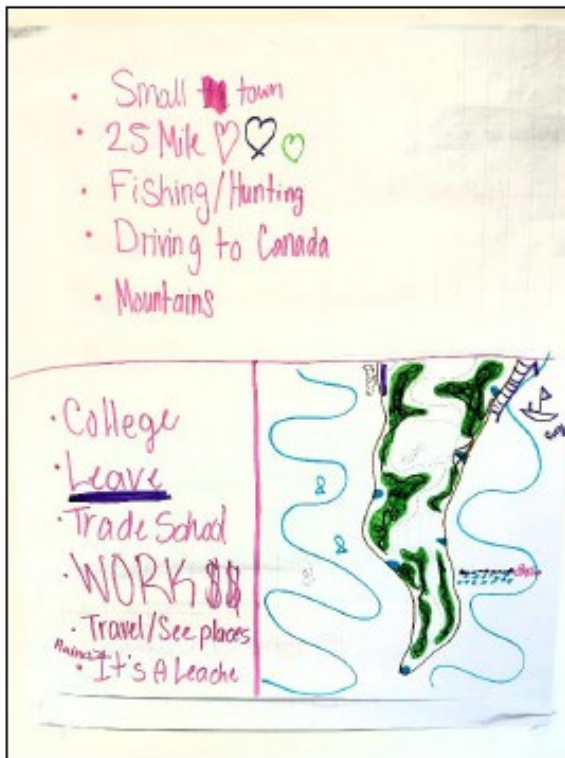 • Small town
• 25 Mile ♡♡♡
• Fishing/Hunting
• Driving to Canada
• Mountains
• College
• Leave
• Trade School
• WORK $$
• Travel/See places
• It's A Leache